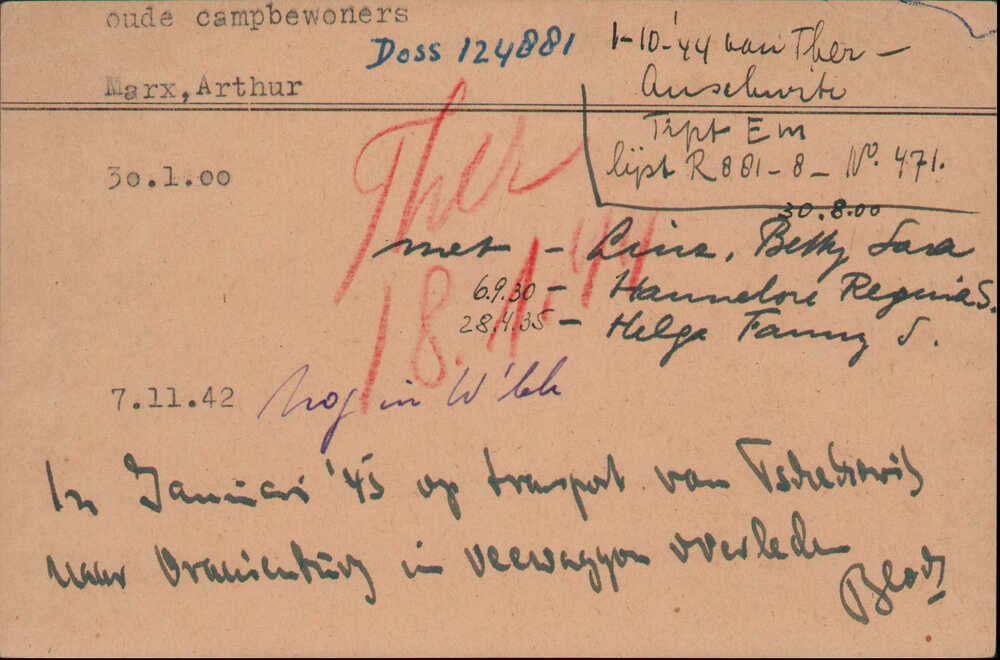 oude campbewoners
Doss 124881
1-10-'44 van Ther -
Auschwitz
Trpt Em
lijst R 881-8- No. 471.
Marx, Arthur
Ther
18.1.44
30.1.00
30.8.00
met - Lina, Betty Sara
6.9.30 - Hannelore Regina S.
28.4.35 - Helga Fanny S.
7.11.42 nog in W'bk
In Januari '45 op transport van Tschechowitz
naar Oranienburg in veewaggon overleden